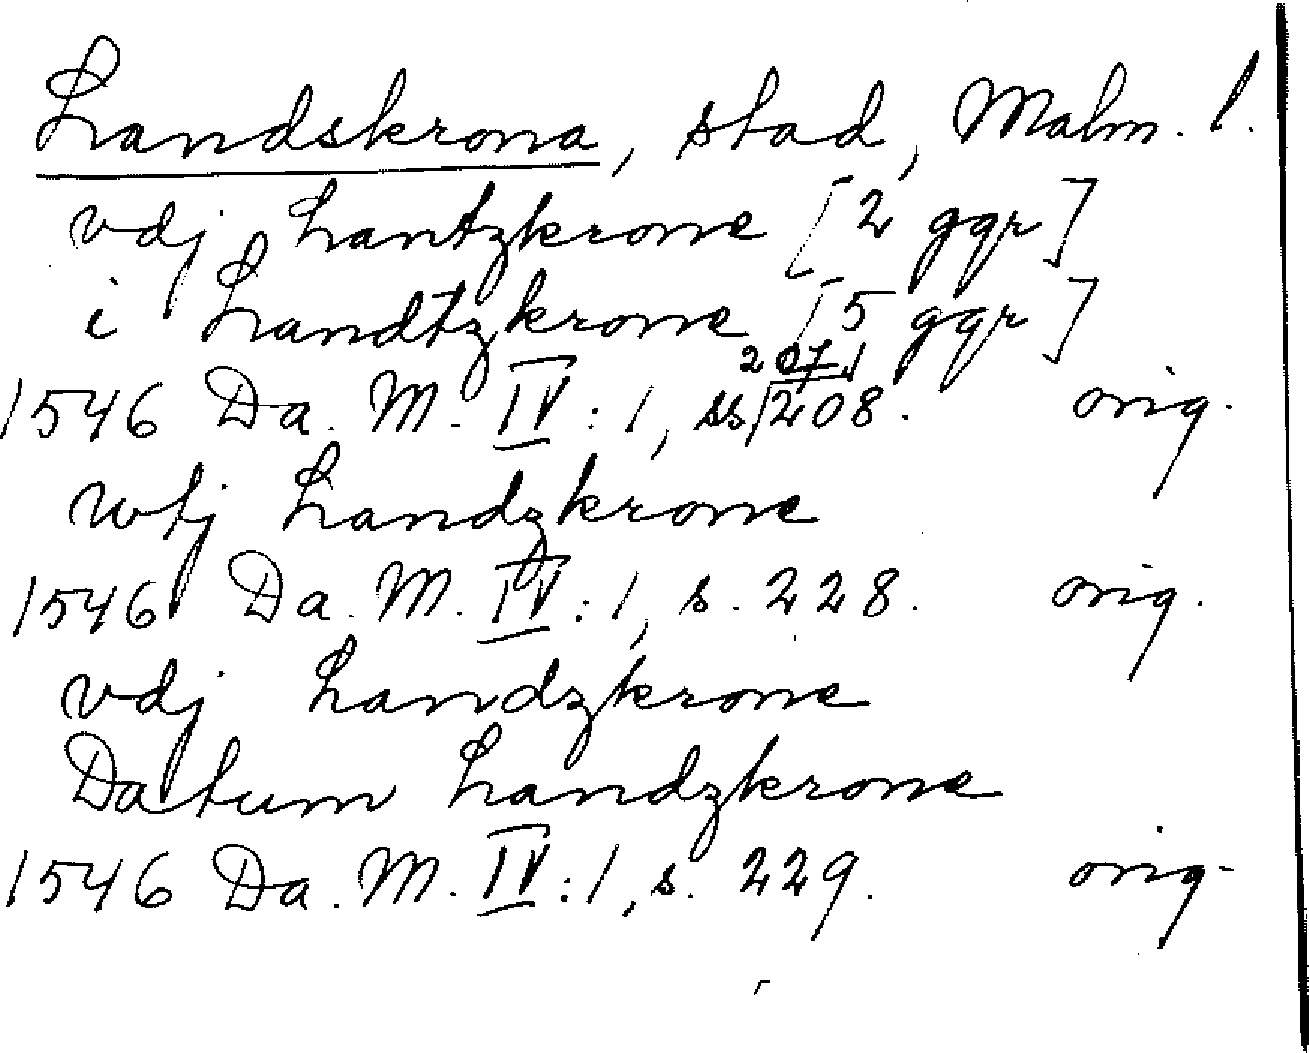 Landskrona, stad, Malm. l.
vdj Lantzkrone [2 ggr]
i Landtzkrone [5 ggr]
1546 Da. M. IV:1, ss. 207, 208. orig.
wtj Landzkrone
1546 Da. M. IV:1, s. 228. orig.
vdj Landzkrone
Datum Landzkrone
1546 Da. M. IV:1, s. 229. orig.